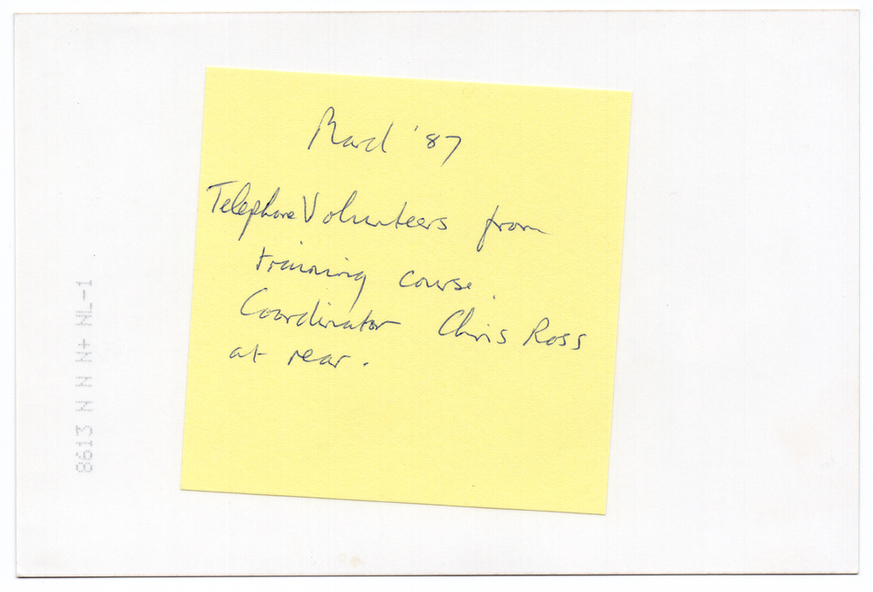 March '87
Telephone Volunteers from
training course.
Coordinator Chris Ross
at rear.
8613 N N N+ NL-1